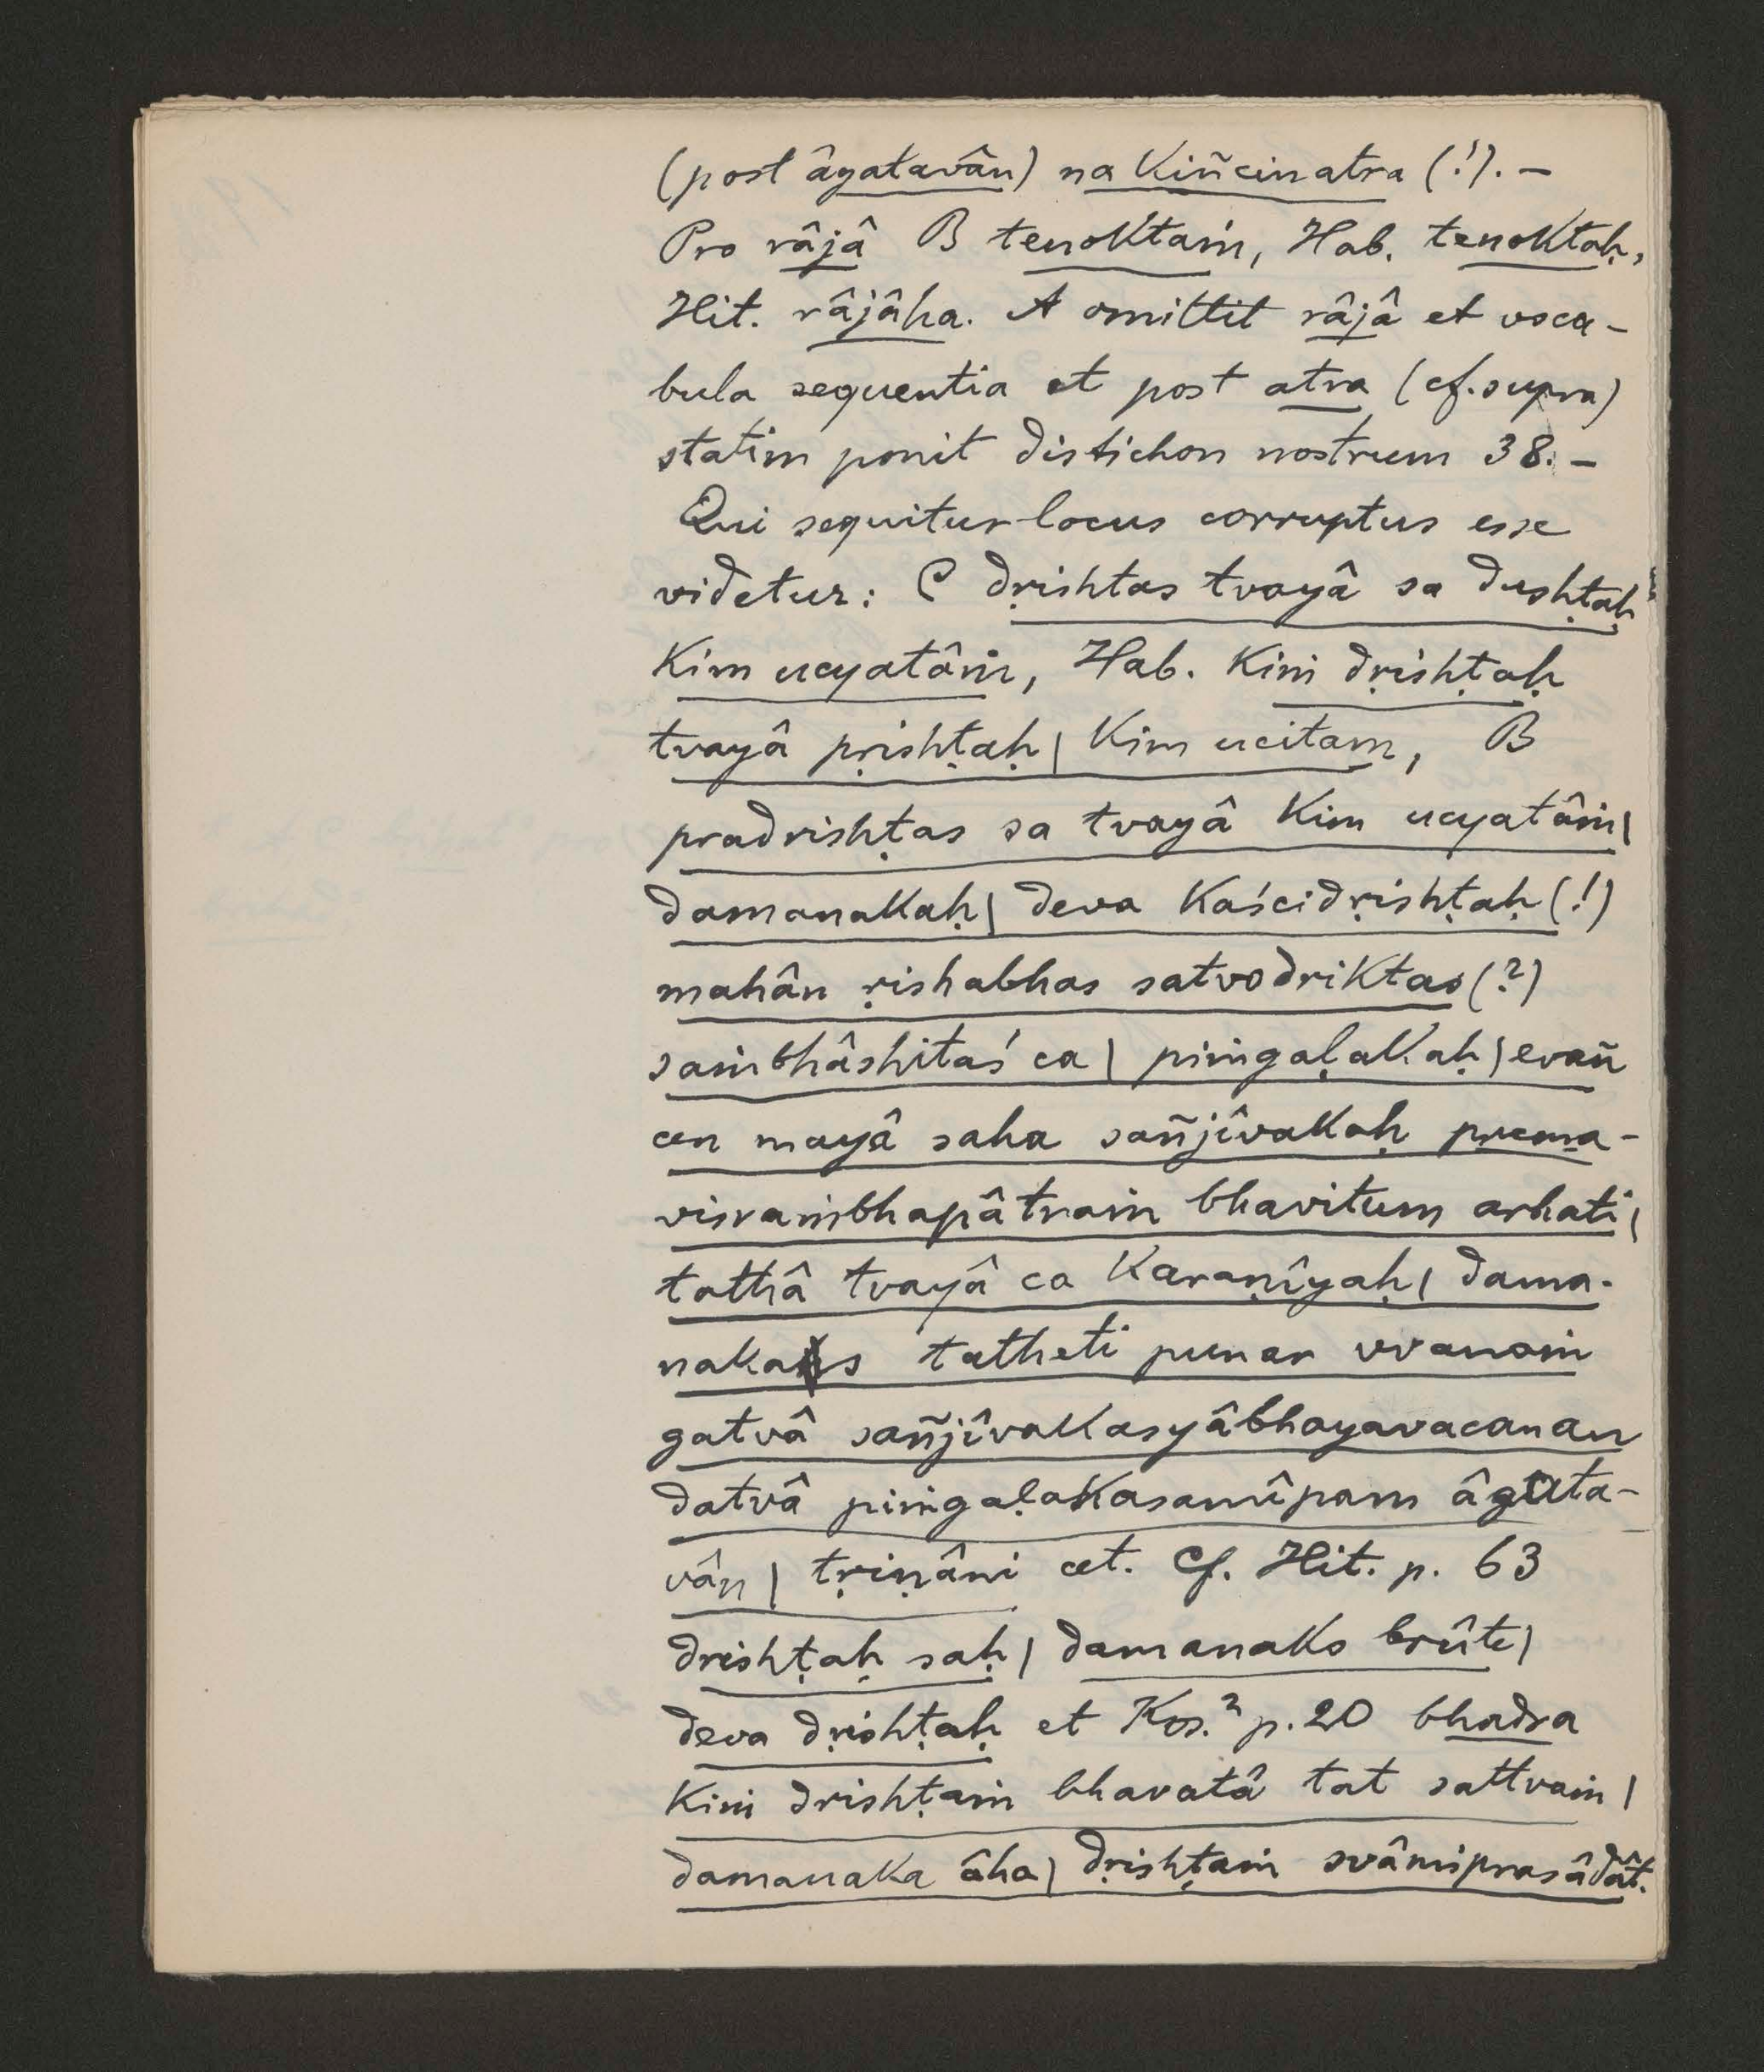 (post âgatavân) na kiñcin atra (!). –
Pro râjâ B tenoktaṁ, Hab. tenoktaḥ,
Hit. râjâha. A omittit râjâ et voca-
bula sequentia et post atra (cf. supra)
statim ponit distichon nostrum 38. –
Qui sequitur locus corruptus esse
videtur: C dṛishtas tvayâ sa dushṭaḥ
kim ucyatâṁ, Hab. kiṁ dṛishṭaḥ
tvayâ pṛishṭaḥ | kim ucitaṃ, B
pradrishṭas sa tvayâ kim ucyatâṁ |
damanakaḥ | deva kaścidṛishṭaḥ (!)
mahân ṛishabhas satvodriktas (?)
saṁbhâshitaś ca | piṁgaḷakaḥ | evañ
cen mayâ saha sañjîvakaḥ prema-
visraṁbhapâtraṁ bhavitum arhati |
tathâ tvayâ ca karaṇîyaḥ | dama-
nakas tatheti punar vvanaṁ
gatvâ sañjîvakasyâbhayavacanan
datvâ piṁgaḷakasamîpam âgata-
vân | tṛiṇâni cet. Cf. Hit. p. 63
drishṭaḥ saḥ | damanako brûte |
deva dṛishṭaḥ et Kos.² p. 20 bhadra
kiṁ drishṭaṁ bhavatâ tat sattvaṁ |
damanaka âha | dṛishṭaṁ svâmiprasâdât.